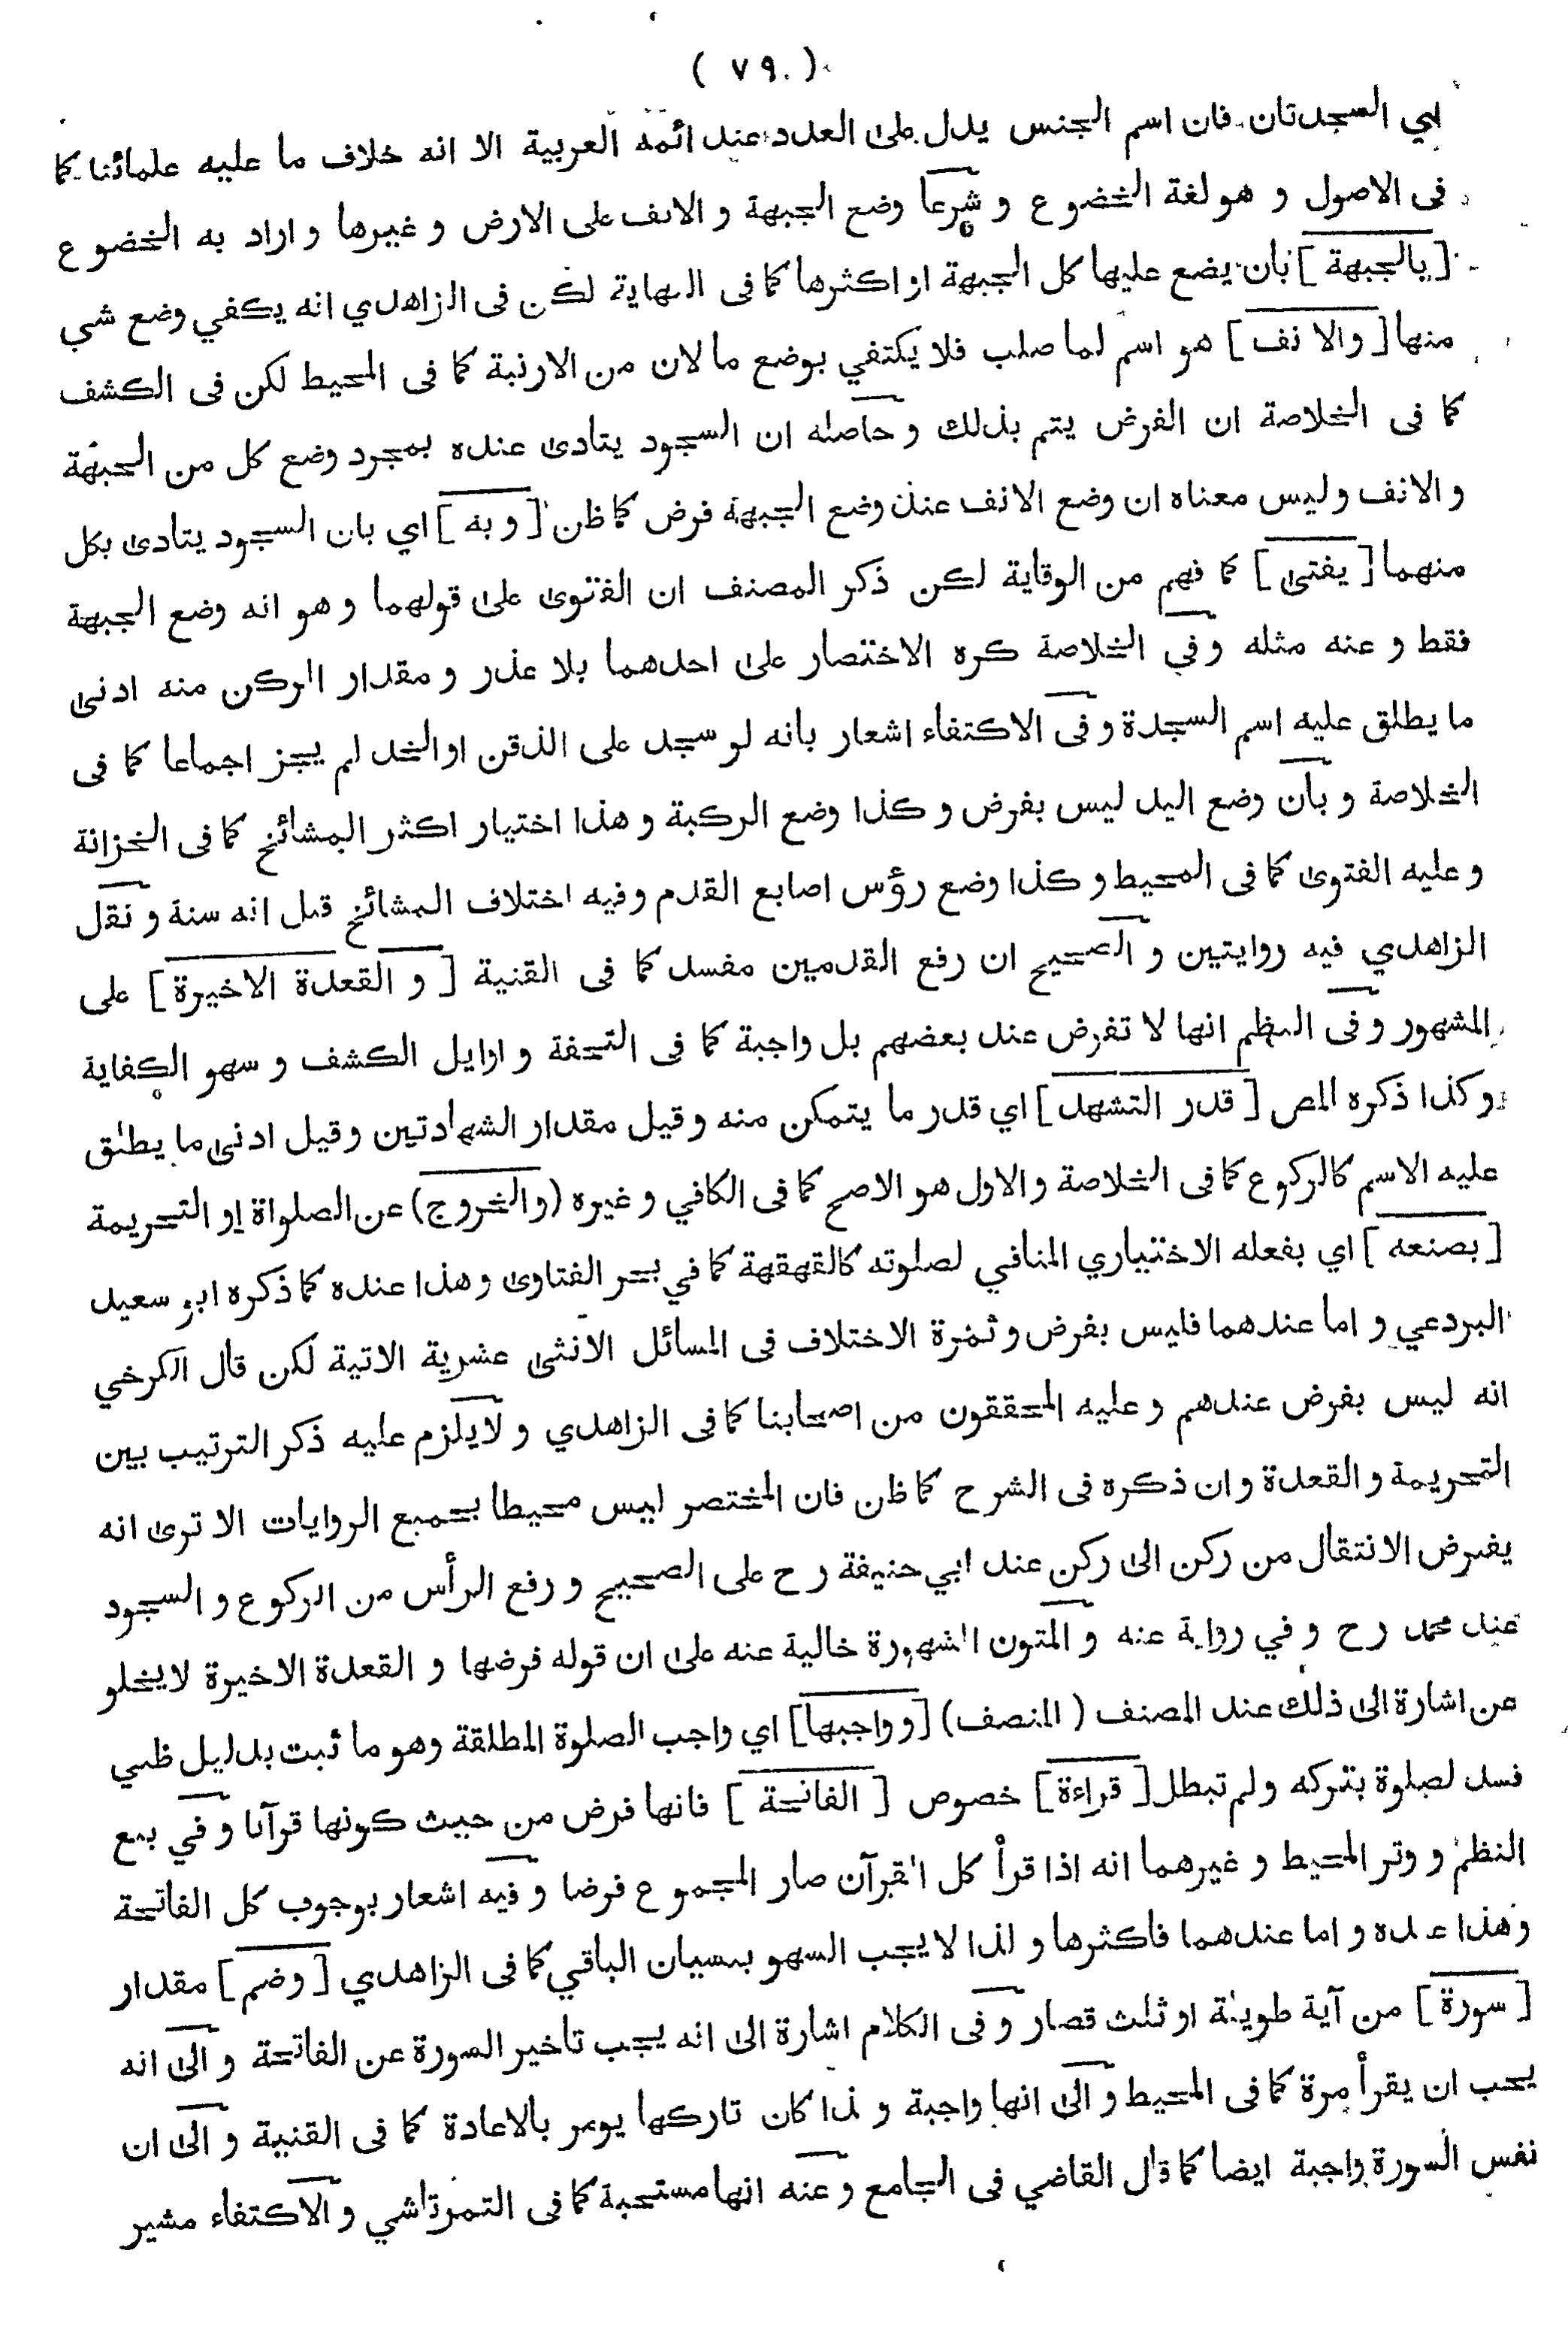 ( ٧٩ )
اي السجدتان فان اسم الجنس يدل على العدد عند ائمة العربية الا انه خلاف ما عليه علمائنا كما
فى الاصول و هو لغة الخضوع و شرعا وضع الجبهة و الانف على الارض و غيرها و اراد به الخضوع
[ بالجبهة ] بان يضع عليها كل الجبهة او اكثرها كما فى النهاية لكن فى الزاهدي انه يكفي وضع شي
منها [ والانف ] هو اسم لما صلب فلا يكتفي بوضع ما لان من الارنبة كما فى المحيط لكن فى الكشف
كما فى الخلاصة ان الفرض يتم بذلك و حاصله ان السجود يتادى عنده بمجرد وضع كل من الجبهة
و الانف وليس معناه ان وضع الانف عند وضع الجبهة فرض كما ظن [ و به ] اي بان السجود يتادى بكل
منهما [ يفتى ] كما فهم من الوقاية لكن ذكر المصنف ان الفتوى على قولهما و هو انه وضع الجبهة
فقط و عنه مثله وفي الخلاصة كره الاختصار على احدهما بلا عذر و مقدار الركن منه ادنى
ما يطلق عليه اسم السجدة و فى الاكتفاء اشعار بانه لو سجد على الذقن او الخد لم يجز اجماعا كما فى
الخلاصة و بأن وضع اليد ليس بفرض و كذا وضع الركبة و هذا اختيار اكثر المشائخ كما فى الخزانة
و عليه الفتوى كما فى المحيط و كذا وضع رؤس اصابع القدم وفيه اختلاف المشائخ قيل انه سنة و نقل
الزاهدي فيه روايتين و الصحيح ان رفع القدمين مفسد كما فى القنية [ و القعدة الاخيرة ] على
المشهور و فى النظم انها لا تفرض عند بعضهم بل واجبة كما فى التحفة و اوايل الكشف و سهو الكفاية
و كذا ذكره المص [ قدر التشهد ] اي قدر ما يتمكن منه وقيل مقدار الشهادتين وقيل ادنى ما يطلق
عليه الاسم كالركوع كما فى الخلاصة والاول هو الاصح كما فى الكافي و غيره (والخروج) عن الصلواة او التحريمة
[ بصنعه ] اي بفعله الاختياري المنافي لصلوته كالقهقهة كما في بحر الفتاوى وهذا عنده كما ذكره ابو سعيد
البردعي و اما عندهما فليس بفرض و ثمرة الاختلاف فى المسائل الاثنى عشرية الاتية لكن قال الكرخي
انه ليس بفرض عندهم و عليه المحققون من اصحابنا كما فى الزاهدي و لا يلزم عليه ذكر الترتيب بين
التحريمة و القعدة و ان ذكره فى الشرح كما ظن فان المختصر ليس محيطا بجميع الروايات الا ترى انه
يفرض الانتقال من ركن الى ركن عند ابي حنيفة رح على الصحيح و رفع الرأس من الركوع و السجود
عند محمد رح و في رواية عنه و المتون المشهورة خالية عنه على ان قوله فرضها و القعدة الاخيرة لايخلو
عن اشارة الى ذلك عند المصنف ( المنصف ) [ و واجبها ] اي واجب الصلوة المطلقة وهو ما ثبت بدليل ظني
فسد لصلوة بتركه ولم تبطل [ قراءة ] خصوص [ الفاتحة ] فانها فرض من حيث كونها قرآنا و في بيع
النظم و وتر المحيط و غيرهما انه اذا قرأ كل القرآن صار المجموع فرضا و فيه اشعار بوجوب كل الفاتحة
وهذا عنده و اما عندهما فاكثرها و لذا لا يجب السهو بنسيان الباقي كما فى الزاهدي [ وضم ] مقدار
[ سورة ] من آية طويلة او ثلث قصار و فى الكلام اشارة الى انه يجب تاخير السورة عن الفاتحة و الى انه
يجب ان يقرأ مرة كما فى المحيط و الى انها واجبة و لذا كان تاركها يومر بالاعادة كما فى القنية و الى ان
نفس السورة واجبة ايضا كما قال القاضي فى الجامع و عنه انها مستحبة كما فى التمرتاشي و الاكتفاء مشير